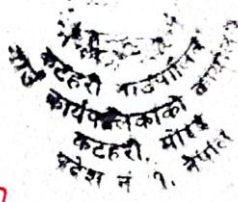 कटहरी गाउँपालिका
गाउँ कार्यपालिकाको कार्यालय
कटहरी, मोरङ
प्रदेश नं १, नेपाल